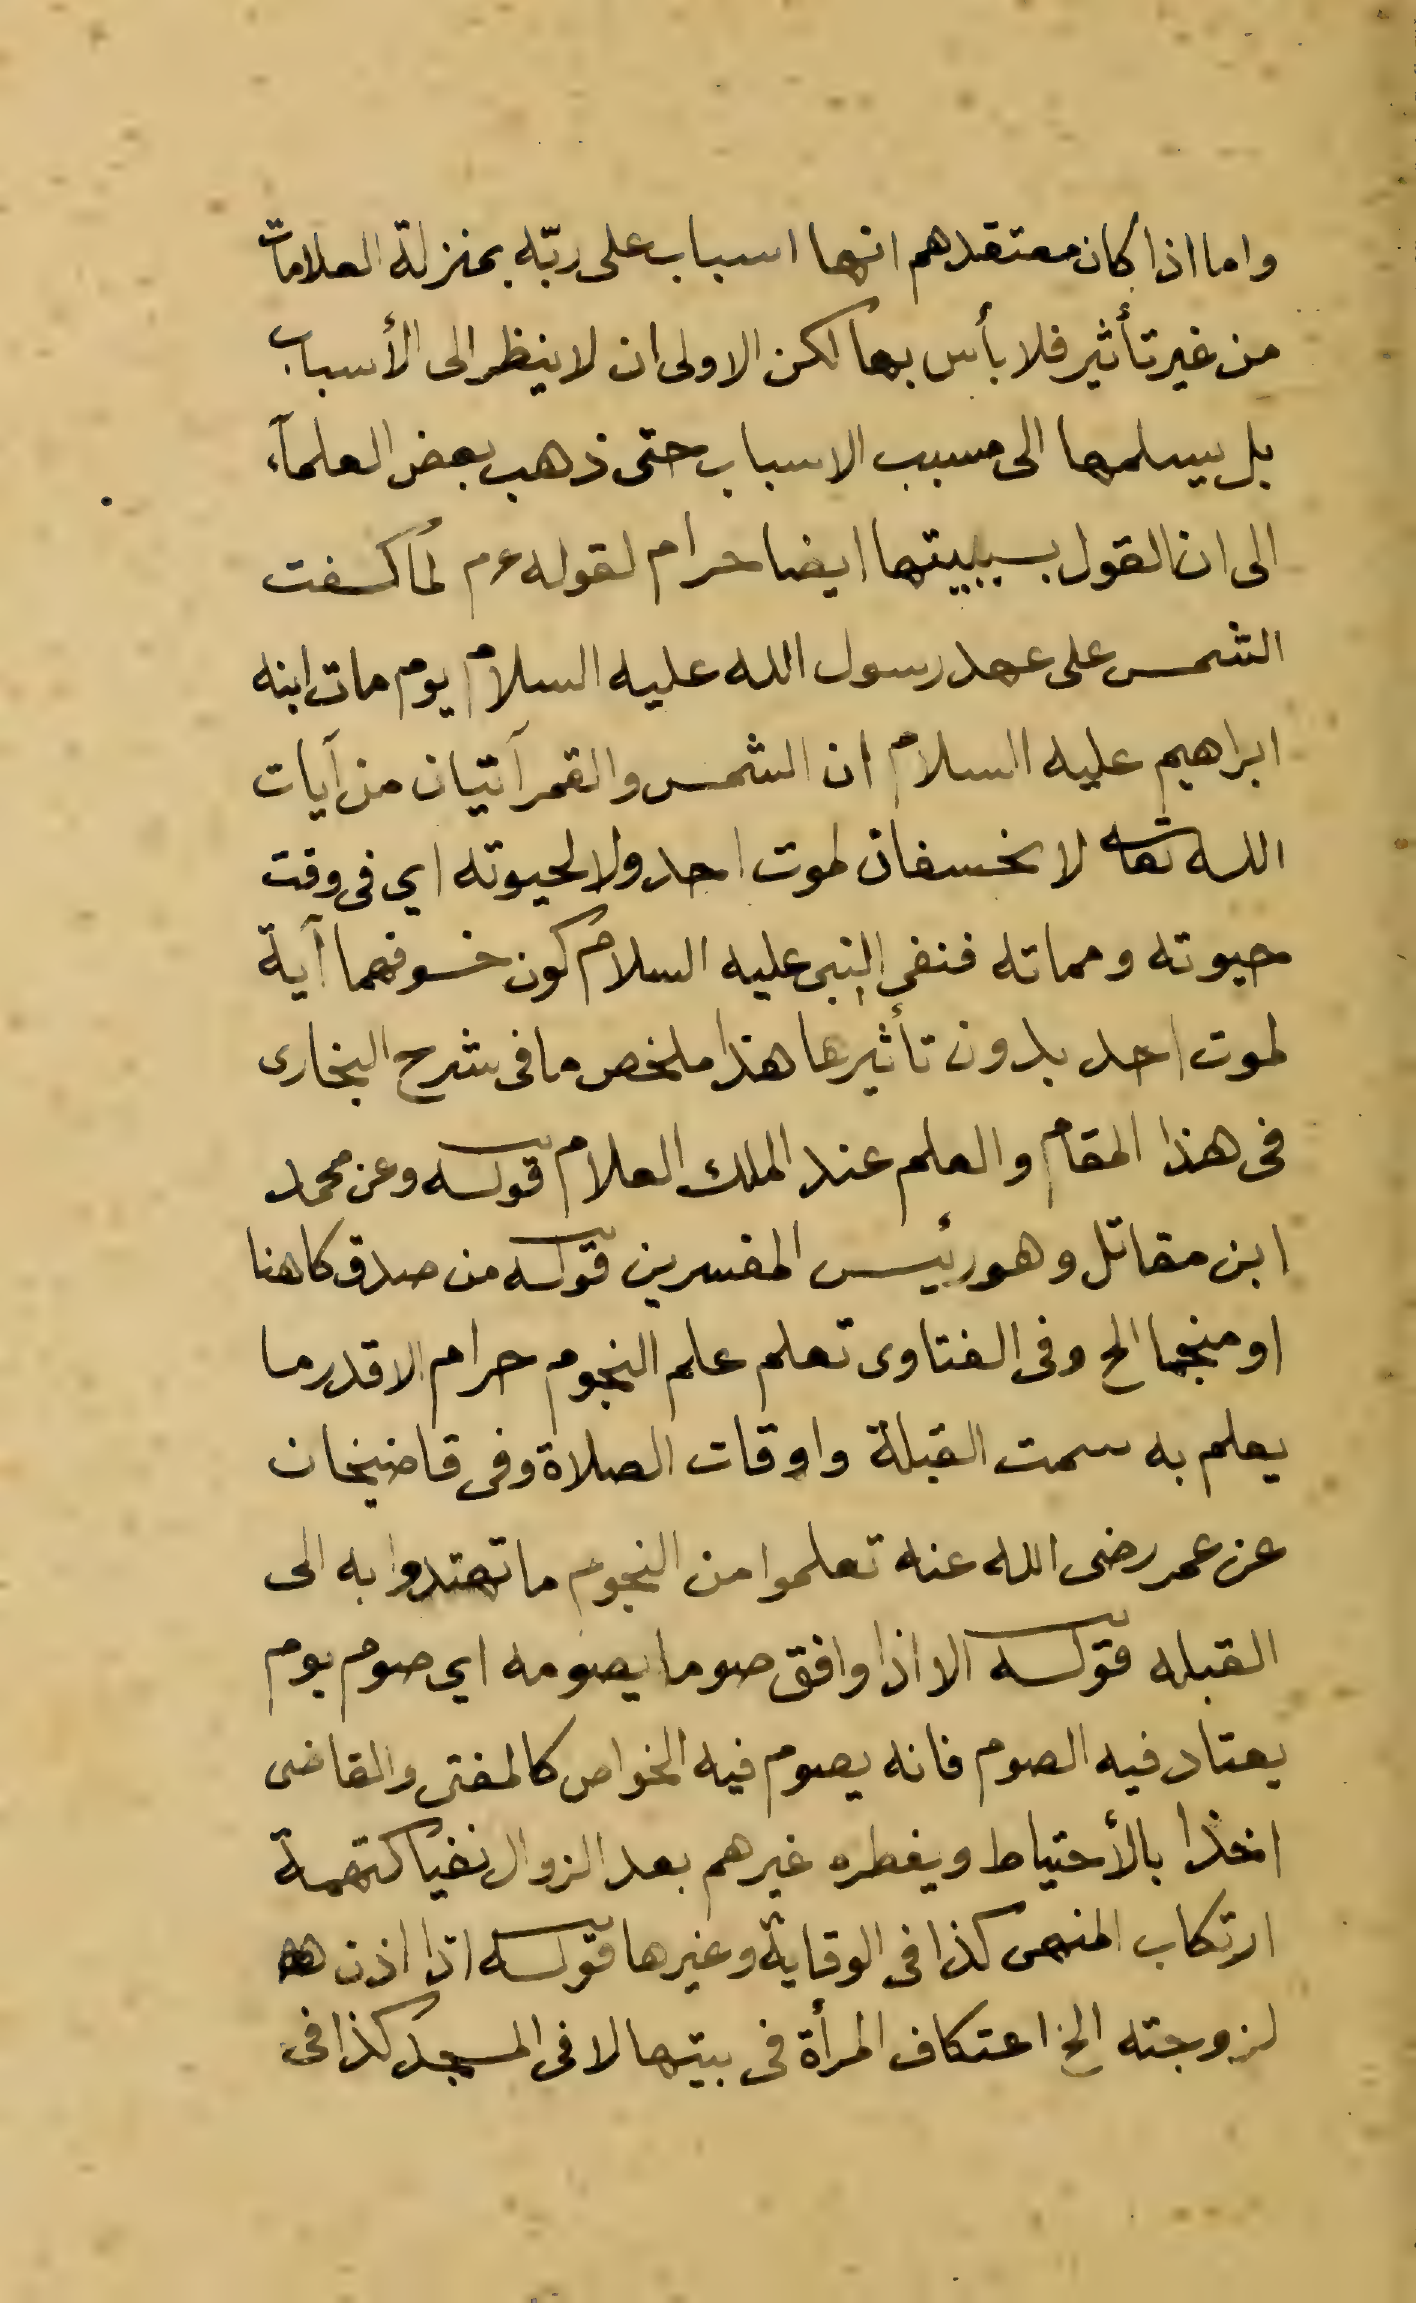 واما اذا كان معتقدهم انها اسباب على ربّه بمنزلة العلامات
من غير تأثير فلا بأس بها لكن الاولى ان لا ينظر الى الأسباب
بل يسلمها الى مسبب الاسباب حتى ذهب بعض العلمآء
الى ان القول بسببيتها ايضا حرام لقوله عم لمّا كسفت
الشمس على عهد رسول الله عليه السلام يوم مات ابنه
ابراهيم عليه السلام ان الشمس والقمر آتيان من آيات
الله تعا لا يخسفان لموت احد ولا لحيوته اي فى وقت
حيوته ومماته فنفى النبى عليه السلام كون خسوفهما آية
لموت احد بدون تأثيرها هذا ملخص ما فى شرح البخارى
فى هذا المقام والعلم عند الملك العلام قوله وعن محمد
ابن مقاتل وهو رئيس المفسرين قوله من صدق كاهنا
او منجما الخ وفى الفتاوى تعلم علم النجوم حرام الا قدر ما
يعلم به سمت القبلة واوقات الصلاة وفى قاضيخان
عن عمر رضى الله عنه تعلموا من النجوم ما تهتدوا به الى
القبله قوله الا اذا وافق صوما يصومه اي صوم يوم
يعتاد فيه الصوم فانه يصوم فيه الخواص كالمفتى والقاضى
اخذا بالأحتياط ويفطره غيرهم بعد الزوال نفيا كتهمة
ارتكاب المنهى كذا فى الوقاية وغيرها قوله اذا اذن
لزوجته الخ اعتكاف المرأة فى بيتها لا فى المسجد كذا فى